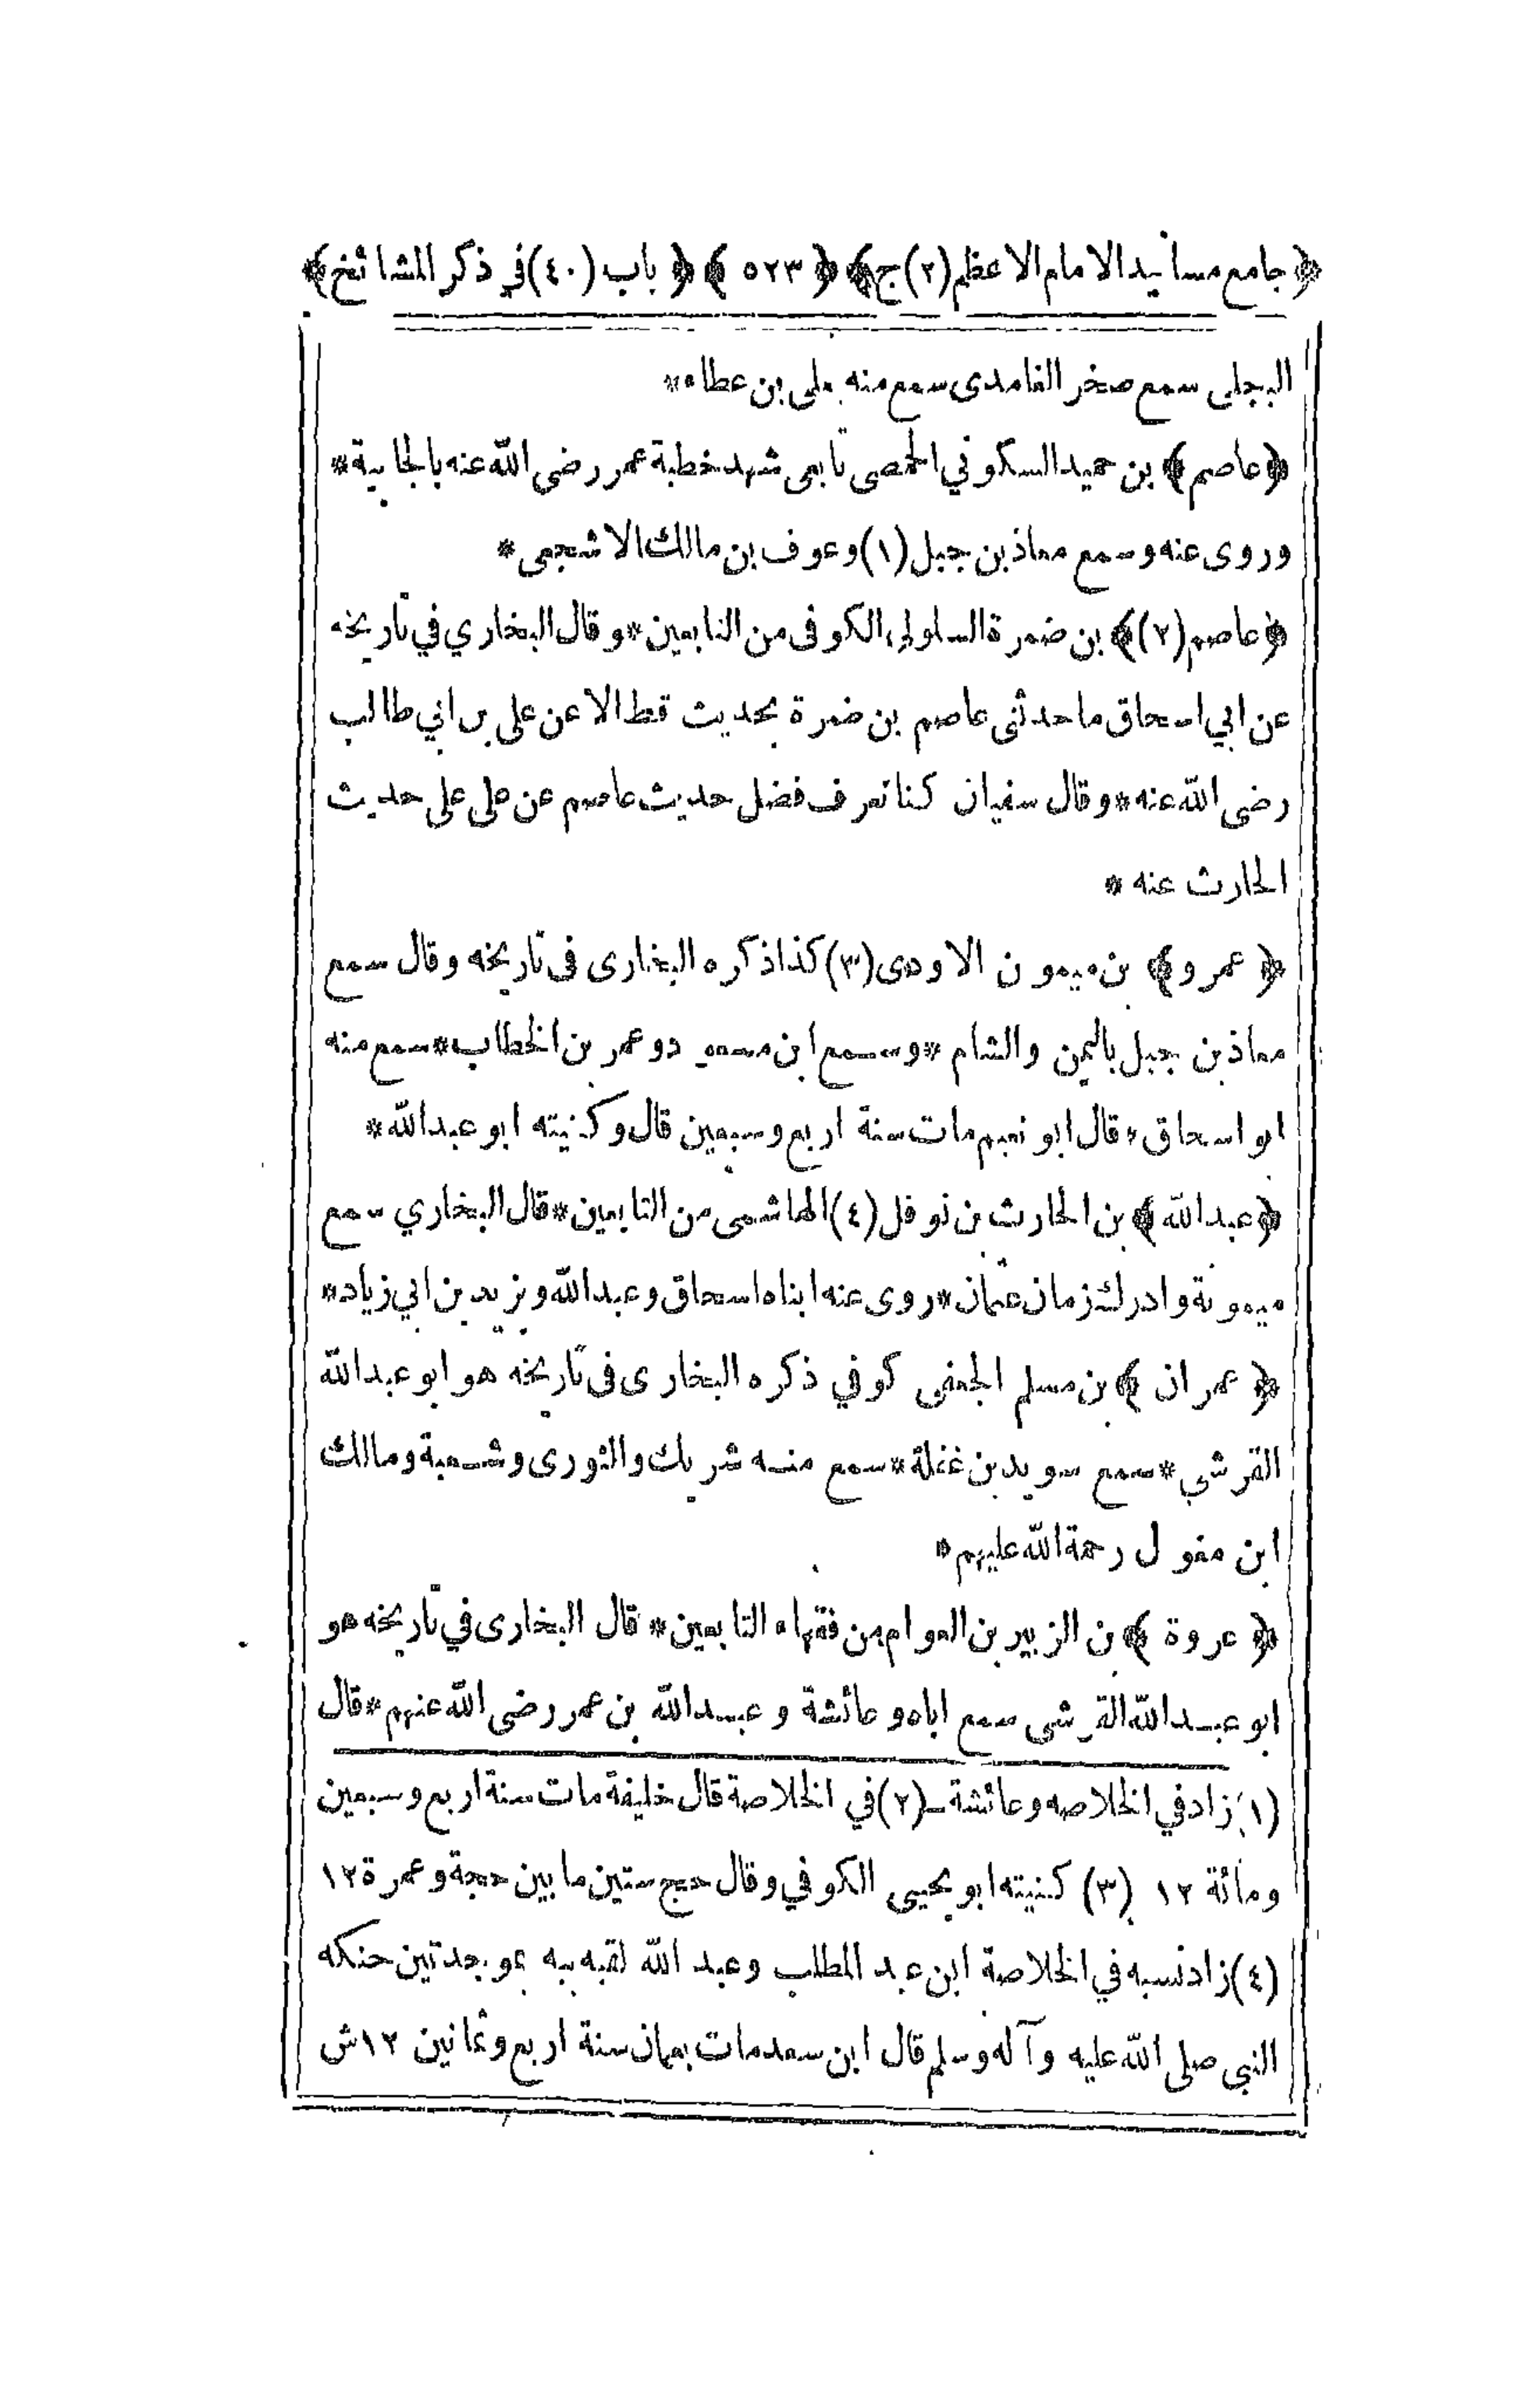 ﴿ جامع مسانيد الامام الاعظم (٢) ج ﴾ ﴿ ٥٢٣ ﴾ ﴿ باب (٤٠) في ذكر المشائخ ﴾
البجلي سمع صخر الغامدى سمع منه يعلى بن عطاء *
﴿ عاصم ﴾ بن حميد السكوني الحمصى تابعى شهد خطبة عمر رضى الله عنه بالجابية *
وروى عنه وسمع معاذ بن جبل (١) وعوف بن مالك الاشجعى *
﴿ عاصم (٢) ﴾ بن ضمرة السلولي الكوفى من التابعين * وقال البخاري في تاريخه
عن ابي اسحاق ما حدثنى عاصم بن ضمرة بحديث قط الا عن علي بن ابي طالب
رضى الله عنه * وقال سفيان كنا نعرف فضل حديث عاصم عن علي على حديث
الحارث عنه *
﴿ عمرو ﴾ بن ميمون الاودى (٣) كذا ذكره البخارى فى تاريخه وقال سمع
معاذ بن جبل باليمن والشام * وسمع ابن مسعود وعمر بن الخطاب * سمع منه
ابو اسحاق * قال ابو نعيم مات سنة اربع وسبعين قال وكنيته ابو عبد الله *
﴿ عبد الله ﴾ بن الحارث بن نوفل (٤) الهاشمى من التابعين * قال البخاري سمع
ميمونة وادرك زمان عثمان * روى عنه ابناه اسحاق وعبد الله ويزيد بن ابي زياد *
﴿ عمران ﴾ بن مسلم الجعفى كوفي ذكره البخارى فى تاريخه هو ابو عبد الله
القرشي * سمع سويد بن غفلة * سمع منه شريك والثورى وشعبة ومالك
ابن مغول رحمة الله عليهم *
﴿ عروة ﴾ بن الزبير بن العوام من فقهاء التابعين * قال البخارى في تاريخه هو
ابو عبد الله القرشى سمع اباه وعائشة وعبد الله بن عمر رضى الله عنهم * قال
(١) زاد في الخلاصه وعائشة ـ (٢) في الخلاصة قال خليفة مات سنة اربع وسبعين
ومائة ١٢ (٣) كنيته ابو يحيى الكوفي وقال حج ستين ما بين حجة وعمرة ١٢
(٤) زاد نسبه في الخلاصة ابن عبد المطلب وعبد الله لقبه ببه بموحدتين حنكه
النبي صلى الله عليه وآله وسلم قال ابن سعد مات بعمان سنة اربع وثمانين ١٢ ش